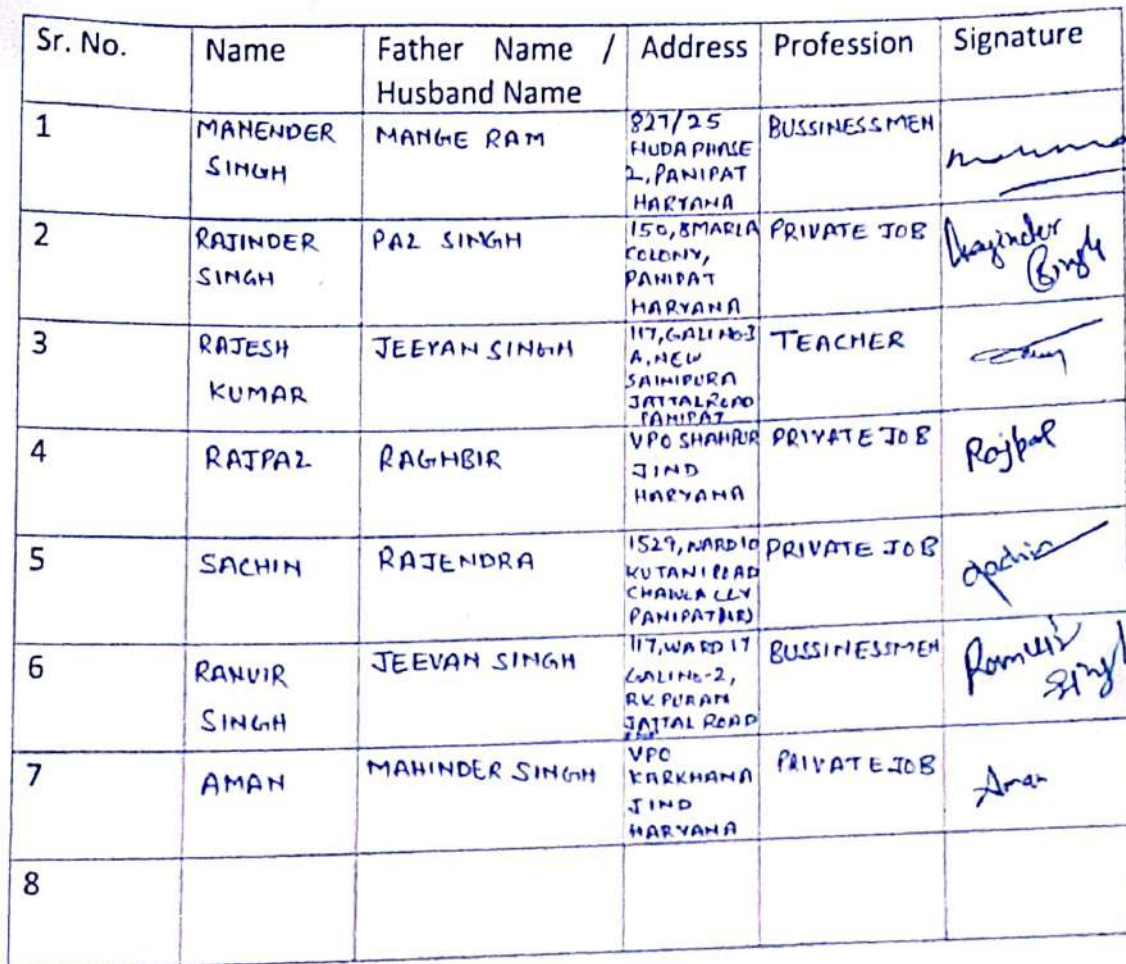 Sr. No. Name Father Name / Husband Name Address Profession Signature
1 MAHENDER SINGH MANGE RAM 827/25 HUDA PHASE 2, PANIPAT HARYANA BUSSINESSMEN
2 RAJINDER SINGH PAL SINGH 150, 8MARLA COLONY, PANIPAT HARYANA PRIVATE JOB Rajinder Singh
3 RAJESH KUMAR JEEVAN SINGH 117, GALI NO-3 A, NEW SAINIPURA JATTAL ROAD PANIPAT TEACHER
4 RAJPAL RAGHBIR VPO SHAHPUR JIND HARYANA PRIVATE JOB Rajpal
5 SACHIN RAJENDRA 1529, WARD 10 KUTANI ROAD CHAWLA CLY PANIPAT PRIVATE JOB Sachin
6 RANVIR SINGH JEEVAN SINGH 117, WARD 17 GALI NO-2, RK PURAM JATTAL ROAD BUSSINESSMEN Ranvir Singh
7 AMAN MAHINDER SINGH VPO KARKHANA JIND HARYANA PRIVATE JOB Aman
8